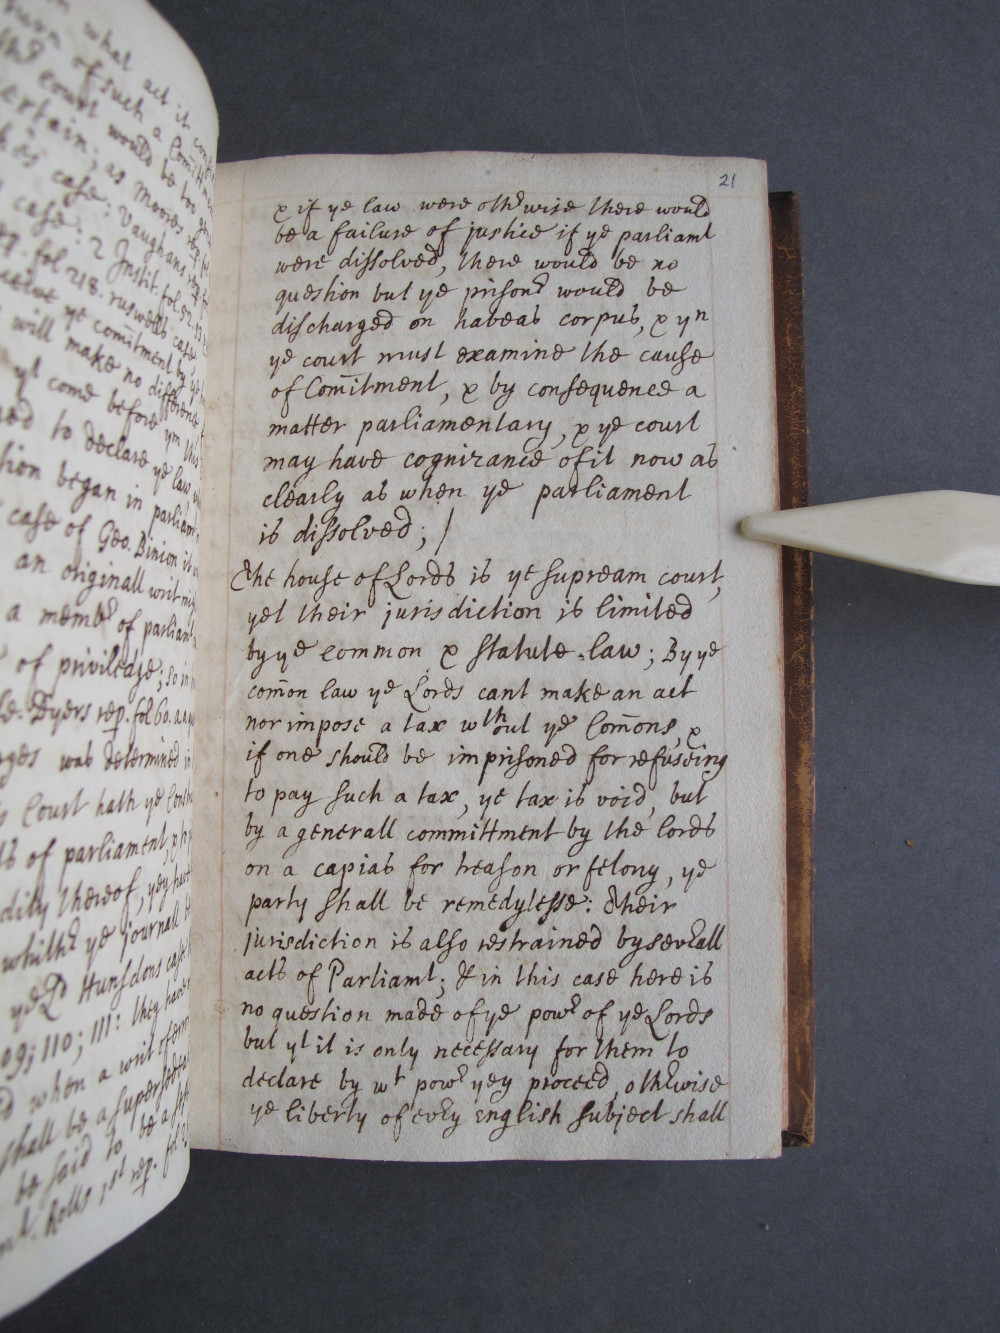 what act it
of such a Com̄itm
court would be too gen
certain; as Moores rep
case: Vaughans rep
case: 2 Instit. fol. 52.
fol 218. ruswells case
ye com̄itment by ye
will make no difference
yt come before ym this
to declare ye law
began in parliam
case of Geo. Binion it
an originall writ mig
a membr of parliamt
of privilédge; so in
Dyers rep. fol 60. a.
was determined in
Court hath ye Cons
of parliament, &
thereof, yey have
whithr ye journall
ye Ld Hunsdons case
109; 110; 111: they have
when a writ of
shall be a supersedeas
be said to be a
Rolls 1st rep. fol
21
& if ye law were othrwise there would
be a failure of justice if ye parliamt
were dissolved, there would be no
question but ye prisonr would be
discharged on habeas corpus, & yn
ye court must examine the cause
of Com̄itment, & by consequence a
matter parliamentary, & ye court
may have cognizance of it now as
clearly as when ye parliament
is dissolved; /
The house of Lords is ye supream court,
yet their jurisdiction is limited
by ye common & statute-law; By ye
com̄on law ye Lords cant make an act
nor impose a tax wthout ye Com̄ons, &
if one should be imprisoned for refuseing
to pay such a tax, ye tax is void, but
by a generall committment by the lords
on a capias for treason or felony, ye
party shall be remedylesse: Their
jurisdiction is also restrained by sevrall
acts of Parliamt; & in this case here is
no question made of ye powr of ye Lords
but yt it is only necessary for them to
declare by wt powr yey proceed, othrwise
ye liberty of evry English subject shall